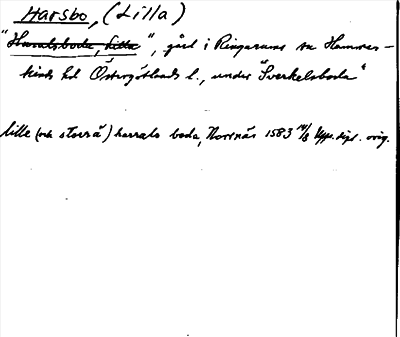 Harsbo, (Lilla)
"Haralsboda, Lilla", gård i Ringarums sn Hammar-
kinds hd Östergötlands l., under "Sverkelsboda"
lille (och storrä) harrals boda, Norrnäs 1583 14/8 Upps. dipl. orig.